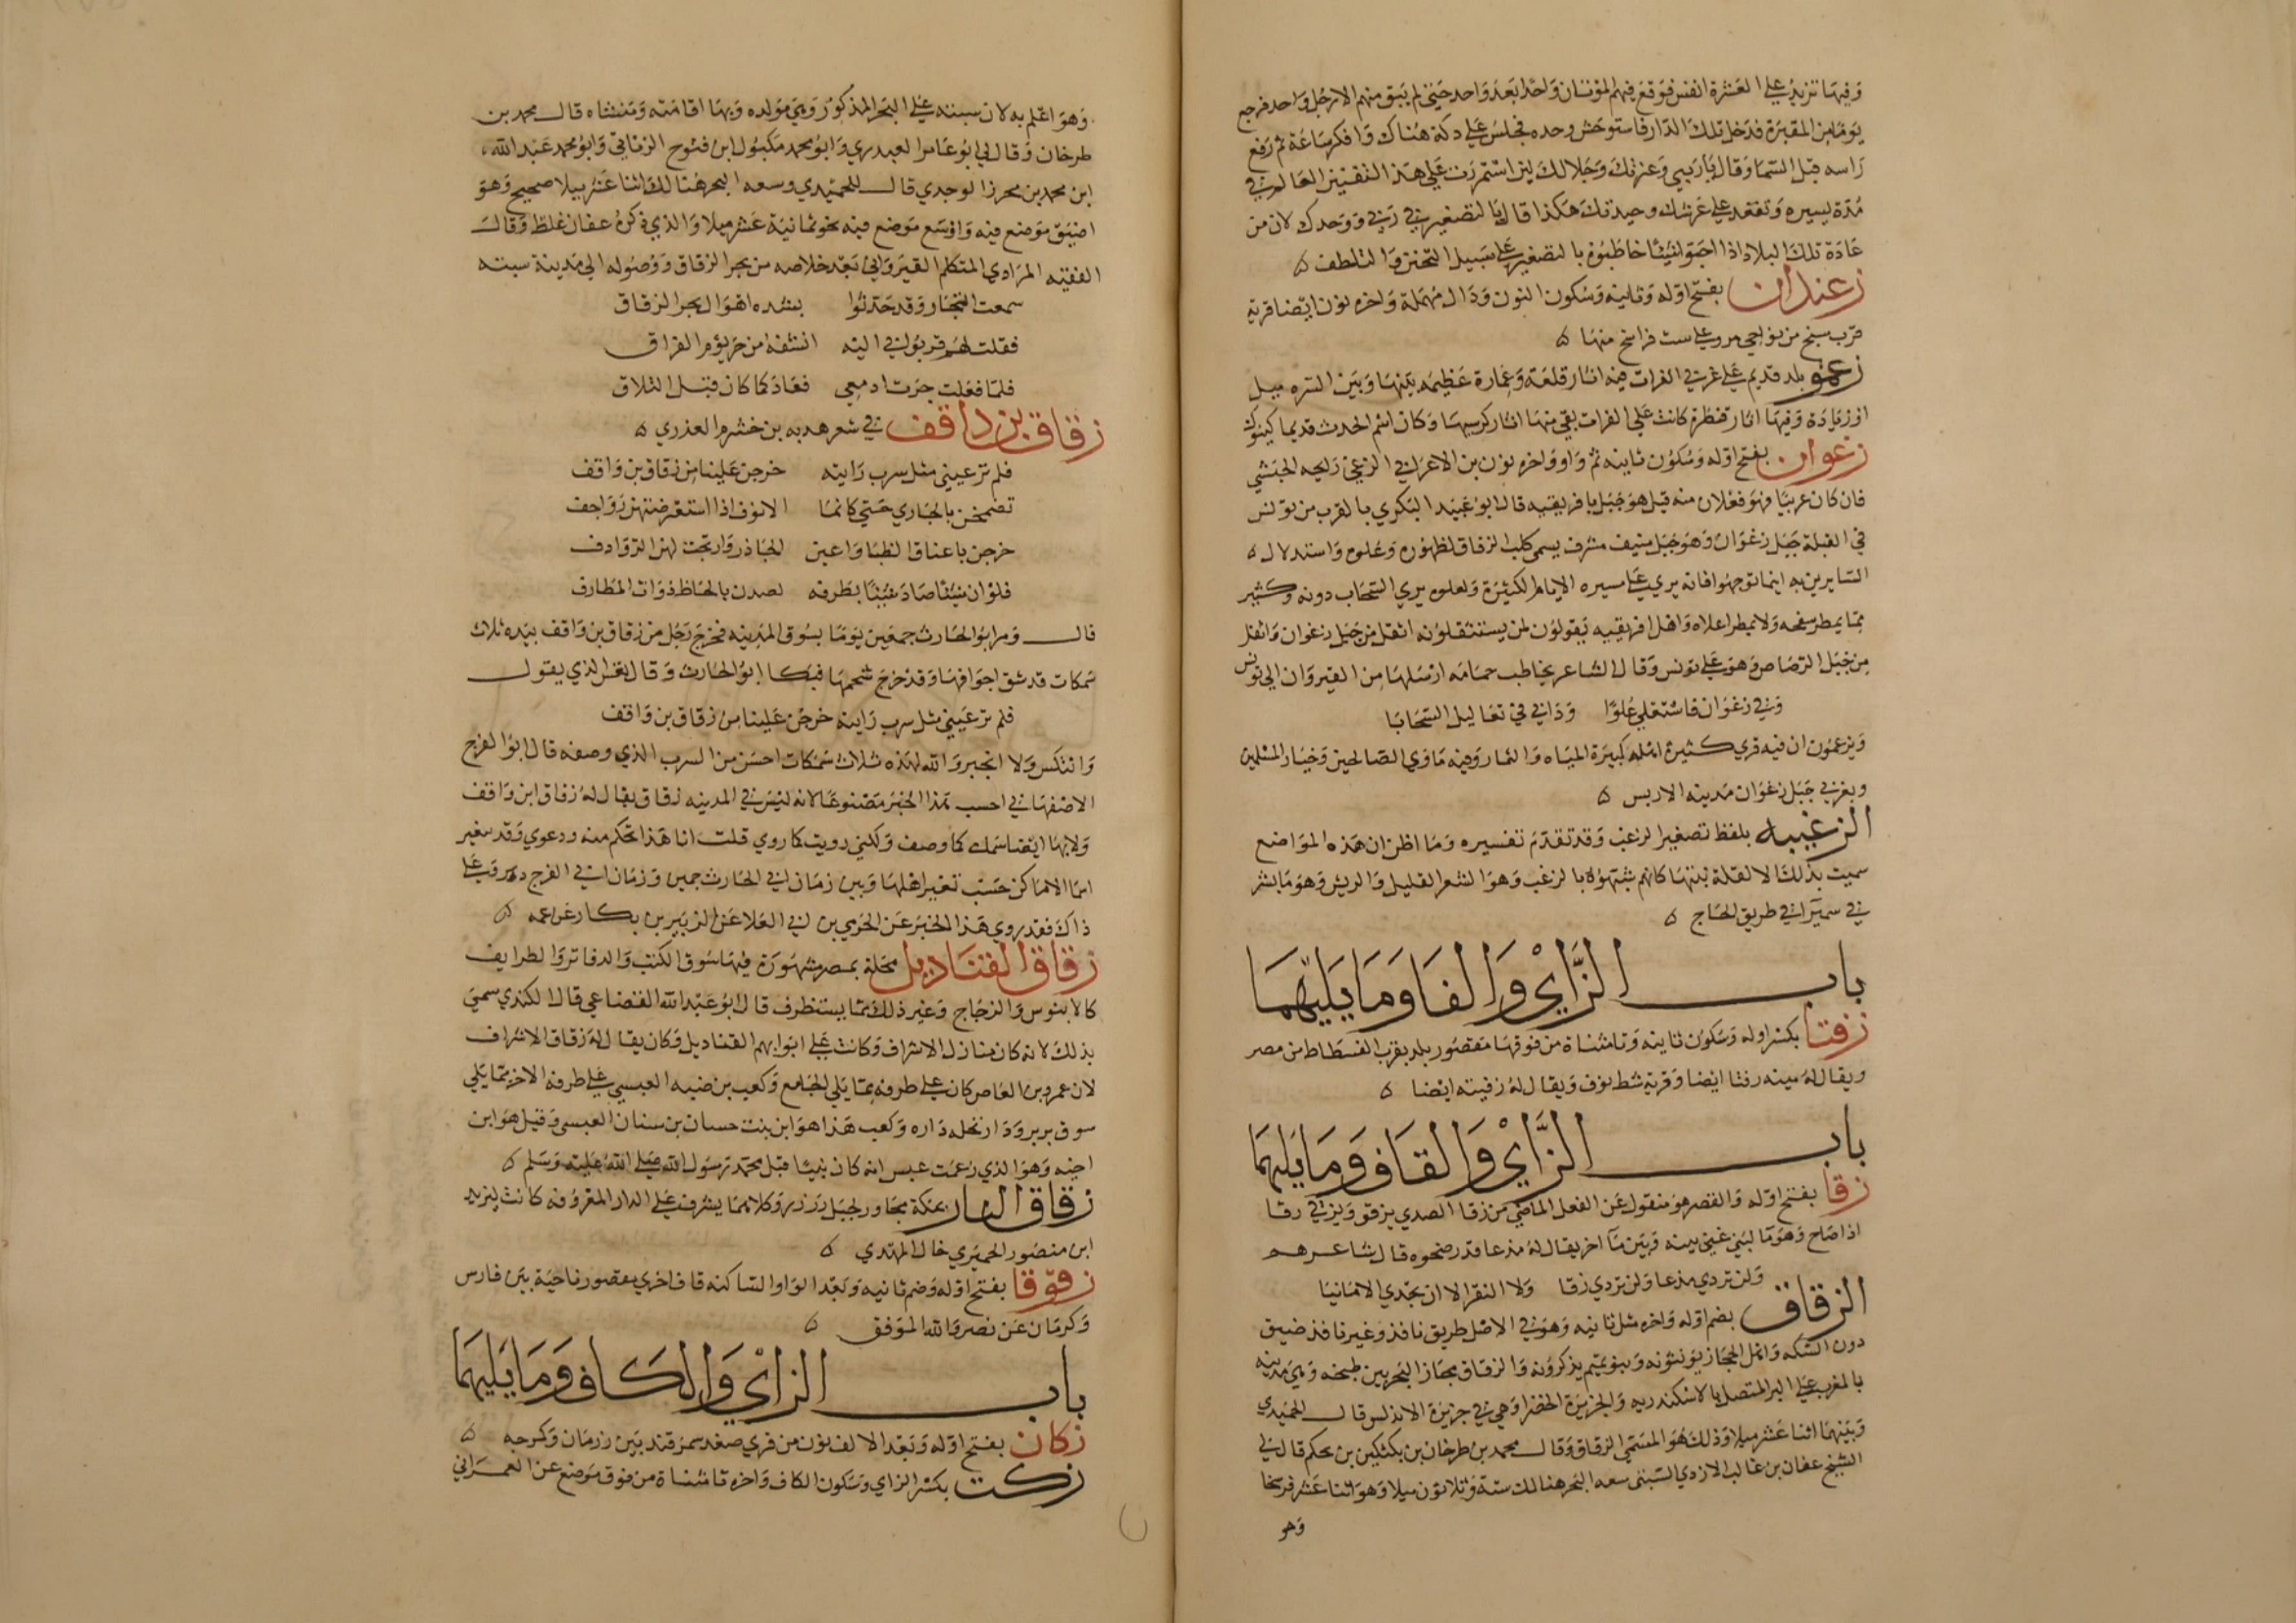 وفيها تزيد على العشرة انفس فوقع فيهم الموتان واحدا بعد واحد حتى لم يبق منهم الا رجل واحد فرجع
يوما من المقبرة فدخل تلك الدار فاستوحش وحده فجلس على دكة هناك وافكر ساعة ثم رفع
راسه قبل السما وقال يا ربيبي وعزتك وجلالك لين استمرت على هذا التقنين العالم في
مدة يسيره وتقعد على عرشك وحيدتك هكذا قال بالتصغير في ربي ووحدك لان من
عادة تلك البلاد اذا احبوا شيئا خاطبوه بالتصغير على سبيل التحنن والتلطف ه
زعندان بفتح اوله وثانيه وسكون النون ودال مهملة واخره نون ايضا قرية
قرب سنج من نواحي مرو على ست فراسخ منها ه
بلد قديم على غربي الفرات فيه اثار قلعة وعمارة عظيمه بينها وبين البيره ميل
او زيادة وفيها اثار قنطرة كانت على الفرات بقي منها اثار كرسيها وكان اسم الحدث قديما كينوك
زغوان بفتح اوله وسكون ثانيه ثم واو واخره نون بن الاعرابي الزغي رايحه الحبشي
فان كان عربيا فهو فعلان منه قيل هو جبل بافريقيه قال ابو عبيد البكري بالقرب من تونس
في القبلة جبل زغوان وهو جبل منيف مشرف يسمى كلب الزقاق لظهوره وعلوه واستدلال ه
السايرين به اينما توجهوا فانه يرى على مسيره الايام الكثيرة ولعلوه يرى السحاب دونه وكثير
مما يمطر سفحه ولا يمطر اعلاه واهل افريقيه يقولون لمن يستثقلونه اثقل من جبل زغوان واثقل
من جبل الرصاص وهو على تونس وقال الشاعر يخاطب حمامه ارسلها من القيروان الى تونس
وفي زغوان فاستعلي علوا ودانى في تعاليك السحابا
ويزعمون ان فيه قرى كثيرة اهله كبيرة المياه والثمار وفيه ماوى الصالحين وخيار المسلمين
وبغربي جبل زغوان مدينه الاربس ه
الزغيبه بلفظ تصغير الزغب وقد تقدم تفسيره وما اظن ان هذه المواضع
سميت بذلك الا لقلة نبتها كانهم شبهوه بالزغب وهو الشعر القليل والريش وهو ما بشر
في سميرا في طريق الحاج ه
باب الزاي والفا وما يليهما
زفتا بكسر اوله وسكون ثانيه وتا مثناة من فوقها مقصور بلد بقرب الفسطاط من مصر
ويقال له منيه زفتا ايضا وقرية شط نوف ويقال له زفيته ايضا ه
باب الزاي والقاف وما يليهما
زقا بفتح اوله والقصر هو منقول عن الفعل الماضي من زقا الصدي يزقو ويزقي زقا
اذا صاح وهو ما لبني غني بينه وبين ما اخر يقال له مذعا قدر ضحوه قال شاعرهم
ولن تردي مذعا ولن تردي زقا ولا النقر الا ان تجدي الامانيا
الزقاق بضم اوله واخره مثل ثانيه وهو في الاصل طريق نافذ وغير نافذ ضيق
دون السكه واهل الحجاز يونثونه وبنو تميم يذكرونه والزقاق مجاز البحر بين طنجه وهي مدينه
بالمغرب على البر المتصل بالاسكندريه والجزيرة الخضرا وهي في جزيرة الاندلس قال الحميدي
وبينهما اثنا عشر ميلا وذلك هو المسمى الزقاق وقال محمد بن طرخان بن بلتكين بن بجكم قال لي
الشيخ عفان بن غالب الازدي السبتي سعه البحر هنالك ستة وثلاثون ميلا وهو اثنا عشر فرسخا
وهو
وهو اعلم به لان سبته على البحر المذكور وهي مولده وبها اقامته ومنشاه قال محمد بن
طرخان وقال لي ابو عامر العبدري وابو محمد مكبول ابن فتوح الزناتي وابو محمد عبد الله
ابن محمد بن محرز الوجدي قال للحميدي وسعه البحر هنالك اثنا عشر ميلا صحيح وهو
اضيق موضع فيه واوسع موضع فيه نحو ثمانية عشر ميلا والذي ذكره عفان غلط وقال
الفقيه المرادي المتكلم القيرواني بعد خلاصه من بحر الزقاق ووصوله الى مدينة سبته
سمعت التجار وقد حدثوا بشده اهوال بحر الزقاق
فقلت لهم قربوني اليه انشفه من حر يوم الفراق
فلما فعلت جرت ادمعي فعاد كما كان قبل التلاق
زقاق بن واقف في شعر هدبه بن خشرم العذري ه
فلم تر عيني مثل سرب رايته خرجن علينا من زقاق بن واقف
تضمخن بالجاري حتى كانما الانوف اذا استعرضتهن رواجف
خرجن باعناق الظبا واعين الجاذر وارتجت لهن الروادف
فلو ان شيئا صاد شيئا بطرفه لصدن بالحاظ ذوات المطارف
قال ومر ابو الحارث جمعين يوما بسوق المدينه فخرج رجل من زقاق بن واقف بيده ثلاث
سمكات قد شق اجوافها وقد خرج شحمها فبكا ابو الحارث وقال تعس الذي يقول
فلم تر عيني مثل سرب رايته خرجن علينا من زقاق بن واقف
وانتكس ولا انجبر والله لهذه ثلاث سمكات احسن من السرب الذي وصفه قال ابو الفرج
الاصفهاني احسب هذا الخبر مصنوعا لانه ليس في المدينه زقاق يقال له زقاق ابن واقف
ولا بها ايضا سمك كما وصف ولكني رويت كما روي قلت انا هذا تحكم منه ودعوي وقد تغير
اسما الاماكن حسب تغير اهلها وبين زمان ابي الحارث جمين وزمان ابي الفرج دهر وعلى
ذاك فقد روي هذا الخبر عن الحرمي بن ابي العلا عن الزبير بن بكار عن عمه ه
زقاق القناديل محلة بمصر مشهورة فيها سوق الكتب والدفاتر والطرايف
كالابنوس والزجاج وغير ذلك مما يستظرف قال ابو عبد الله القضاعي قال الكندي سمي
بذلك لانه كان منازل الاشراف وكانت على ابوابهم القناديل وكان يقال له زقاق الاشراف
لان عمرو بن العاص كان على طرفه مما يلي الجامع وكعب بن ضبه العبسي على طرفه الاخر مما يلي
سوق بربر ودار نخله داره وكعب هذا هو ابن بنت حسان بن سنان العبسي وقيل هو ابن
اخيه وهو الذي زعمت عبس انه كان نبيا قبل محمد رسول الله صلى الله عليه وسلم ه
زقاق النار بمكة مجاور لجبل زرزر وكلاهما يشرف على الدار المعروفه كانت ليزيد
ابن منصور الحميري خال المهدي ه
زقوقا بفتح اوله وضم ثانيه وبعد الواو الساكنه قاف اخرى مقصور ناحية بين فارس
وكرمان عن نصر والله الموفق ه
باب الزاي والكاف وما يليهما
زكان بفتح اوله وبعد الالف نون من قرى صغد سمرقند بين رزمان وكرجه ه
زكت بكسر الزاي وسكون الكاف واخره تا مثناة من فوق موضع عن العمراني